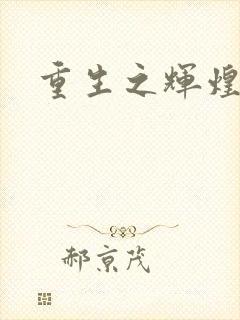 重生之辉煌
郝京茂